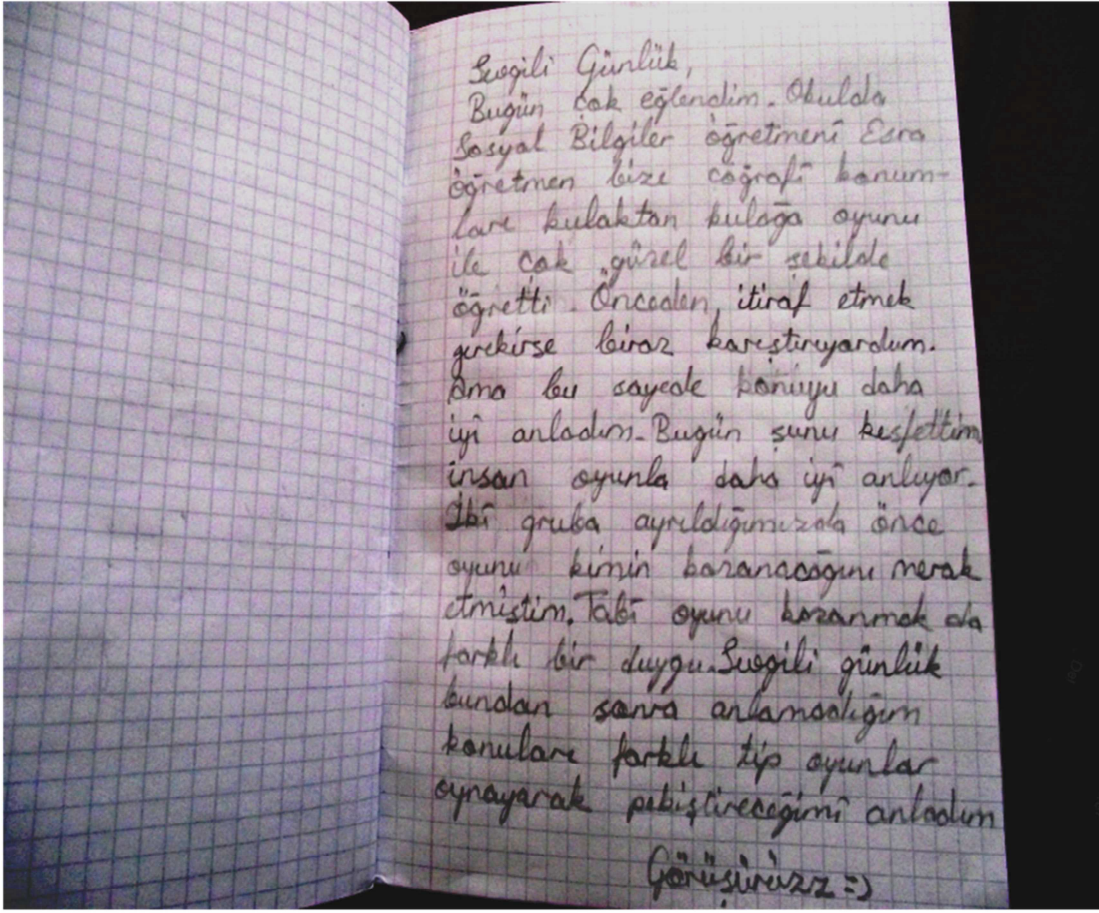 Sevgili Günlük,
Bugün çok eğlendim. Okulda
Sosyal Bilgiler öğretmeni Esra
öğretmen bize coğrafi konum-
ları kulaktan kulağa oyunu
ile çok güzel bir şekilde
öğretti. Önceden, itiraf etmek
gerekirse biraz karıştırıyordum.
Ama bu sayede konuyu daha
iyi anladım. Bugün şunu keşfettim
insan oyunla daha iyi anlıyor.
İki gruba ayrıldığımızda önce
oyunu kimin kazanacağını merak
etmiştim. Tabi oyunu kazanmak da
farklı bir duygu. Sevgili günlük
bundan sonra anlamadığım
konuları farklı tip oyunlar
oynayarak pekiştireceğimi anladım
Görüşürüzz =)